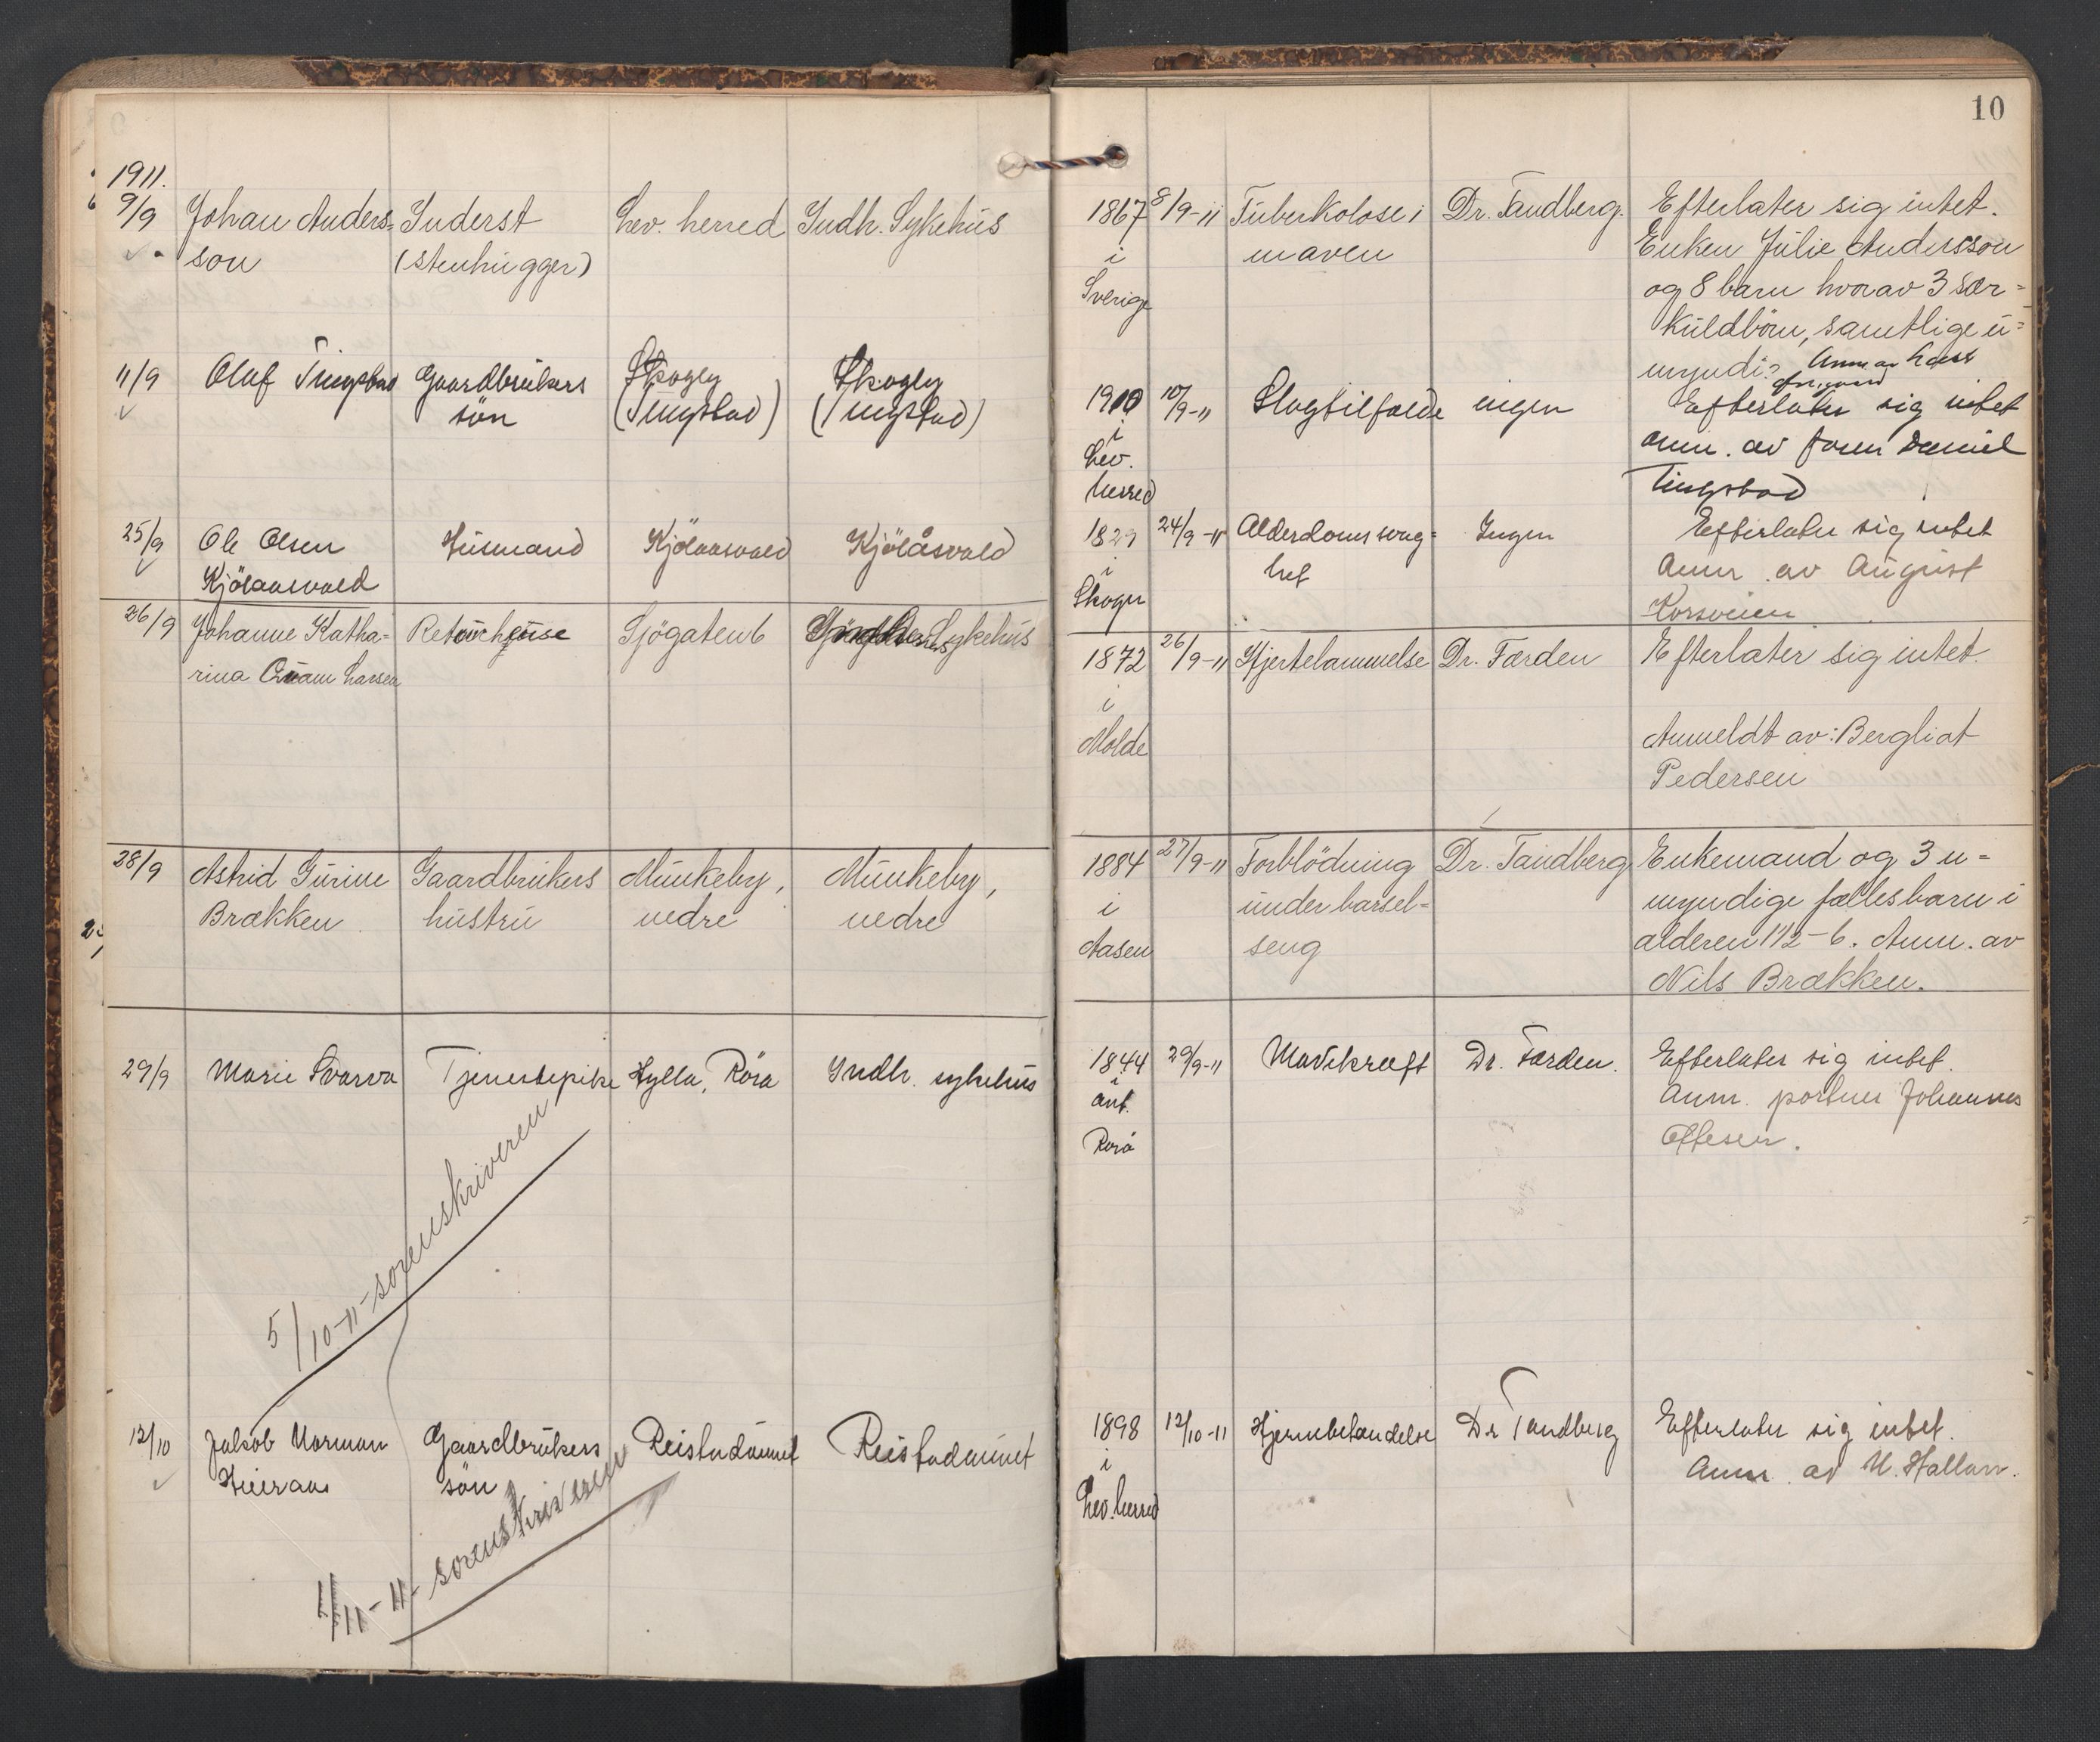 10
1911.
9/9 Johan Anders= Inderst Lev. herred Indh. Sykehus 1867 8/9-11 Tuberkolose i Dr. Tandberg. Efterlater sig intet.
son (stenhugger) i maven Enken Julie Andersson
Sverige og 8 barn hvorav 3 sær=
kuldbörn, samtlige u=
myndi? Anm av Lars
11/9 Olaf Tingstad Gaardbrukers Skogly Skogly 1910 10/9-11 Slagtilfælde ingen Efterlater sig intet
sön (Tingstad) (Tingstad) i anm. av faren Daniel
Lev. Tingstad
herred
25/9 Ole Olsen Husmand Kjölaasvald Kjölåsvald 1829 24/9-11 Alderdomssvag= Ingen Efterlater sig intet
Kjölaasvald i het Anm. av August
Skogn Korsveien
26/9 Johanne Katha= Retouchøse Sjögaten 6 Sykehus 1872 26/9-11 Hjertelammelse Dr. Færden Efterlater sig intet.
rina Qvam Larsen i
Molde Anmeldt av: Bergliot
Pedersen
28/9 Astrid Gurine Gaardbrukers Munkeby, Munkeby, 1884 27/9-11 Forblödning Dr. Tandberg Enkemand og 3 u=
Brækken hustru nedre nedre i under barsel= myndige fællesbarn i
Aasen seng alderen 1 1/2-6. Anm. av
Nils Brækken.
29/9 Marie Svarva Tjenestepike Hylla, Röra Indh. sykehus 1844 29/9-11 Mavekræft Dr. Færden. Efterlater sig intet.
i Anm. portner Johannes
ant. Ottesen.
Rora
5/10-11- sorenskriveren
12/10 Jakob Norman Gaardbrukers Reistadaunet Reistadaunet 1898 12/10-11 Hjernebetændelse Dr Tandberg Efterlater sig intet.
sön i Anm. av N. Hallan.
Lev. herred
1/11-11- sorenskriveren